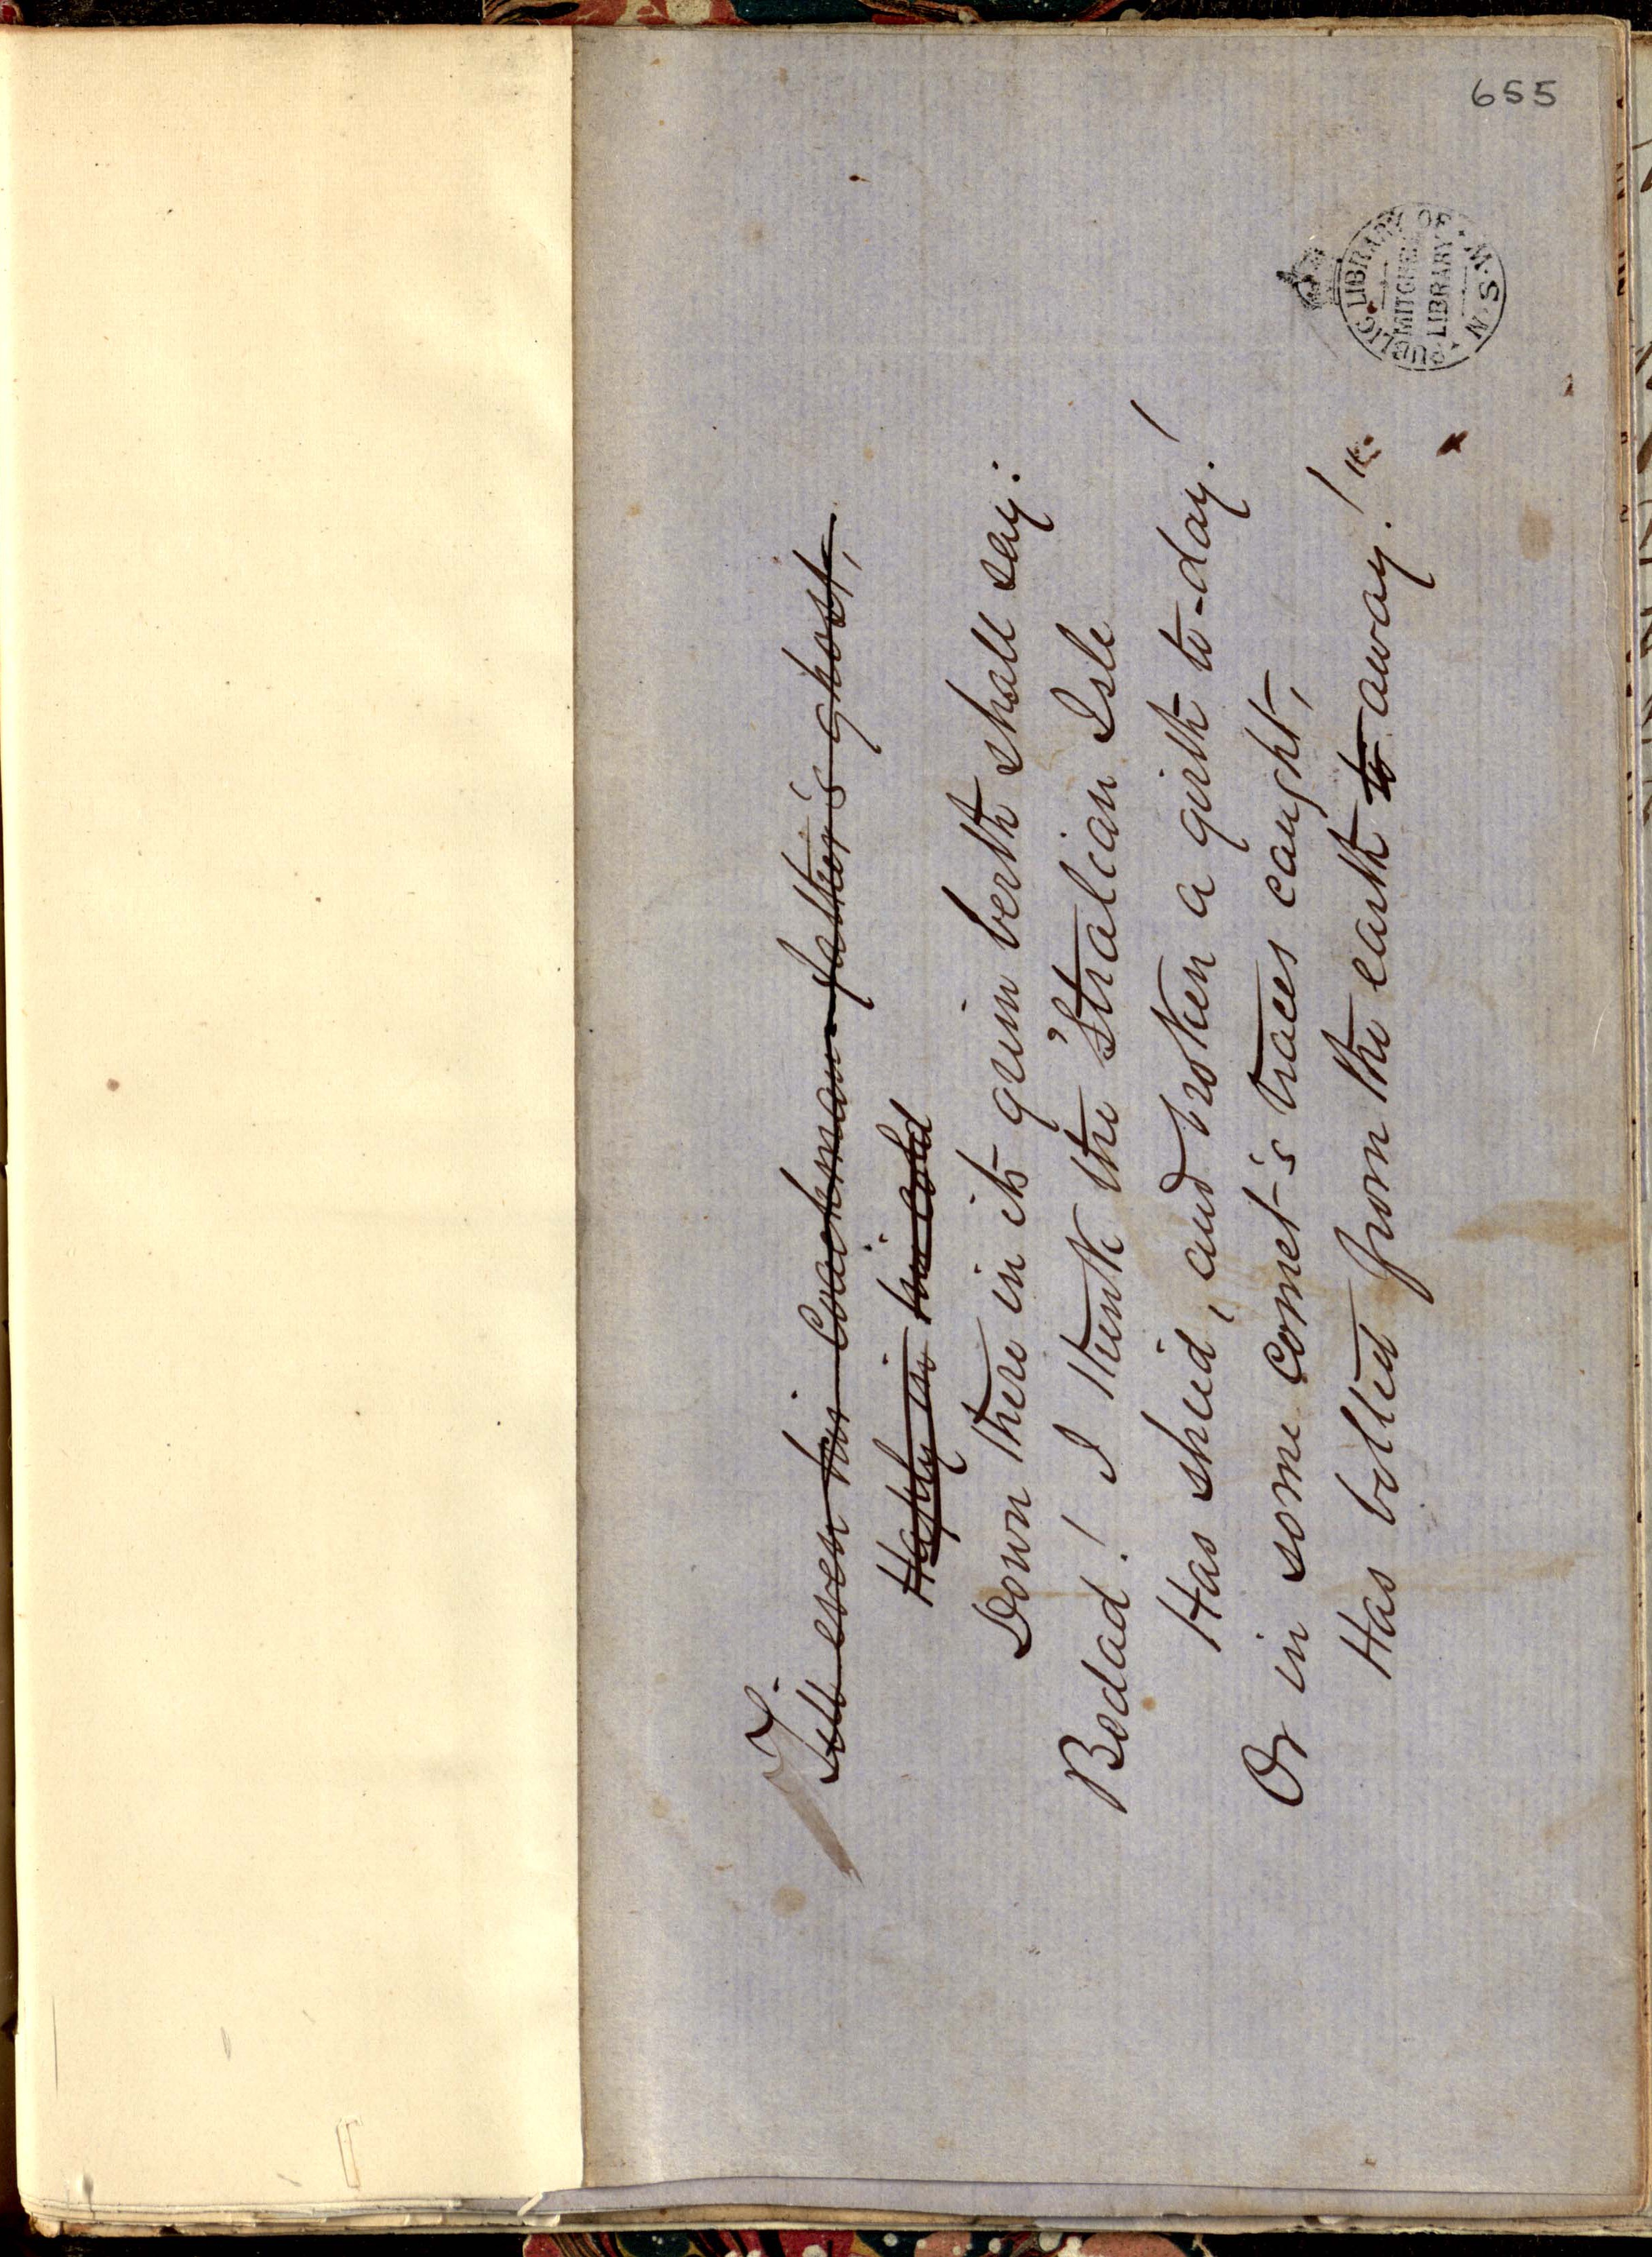 655
7.
~~Till even his coachman-father's ghost,~~
~~Haply in his cold~~
Down there in its grim berth shall say:
Bedad! I think the 'Stralian Isle
Has shied, and broken a girth to-day!
Or in some comet's traces caught,
Has bolted from the earth ~~to~~ away!"
PUBLIC LIBRARY OF N.S.W.
MITCHELL
LIBRARY